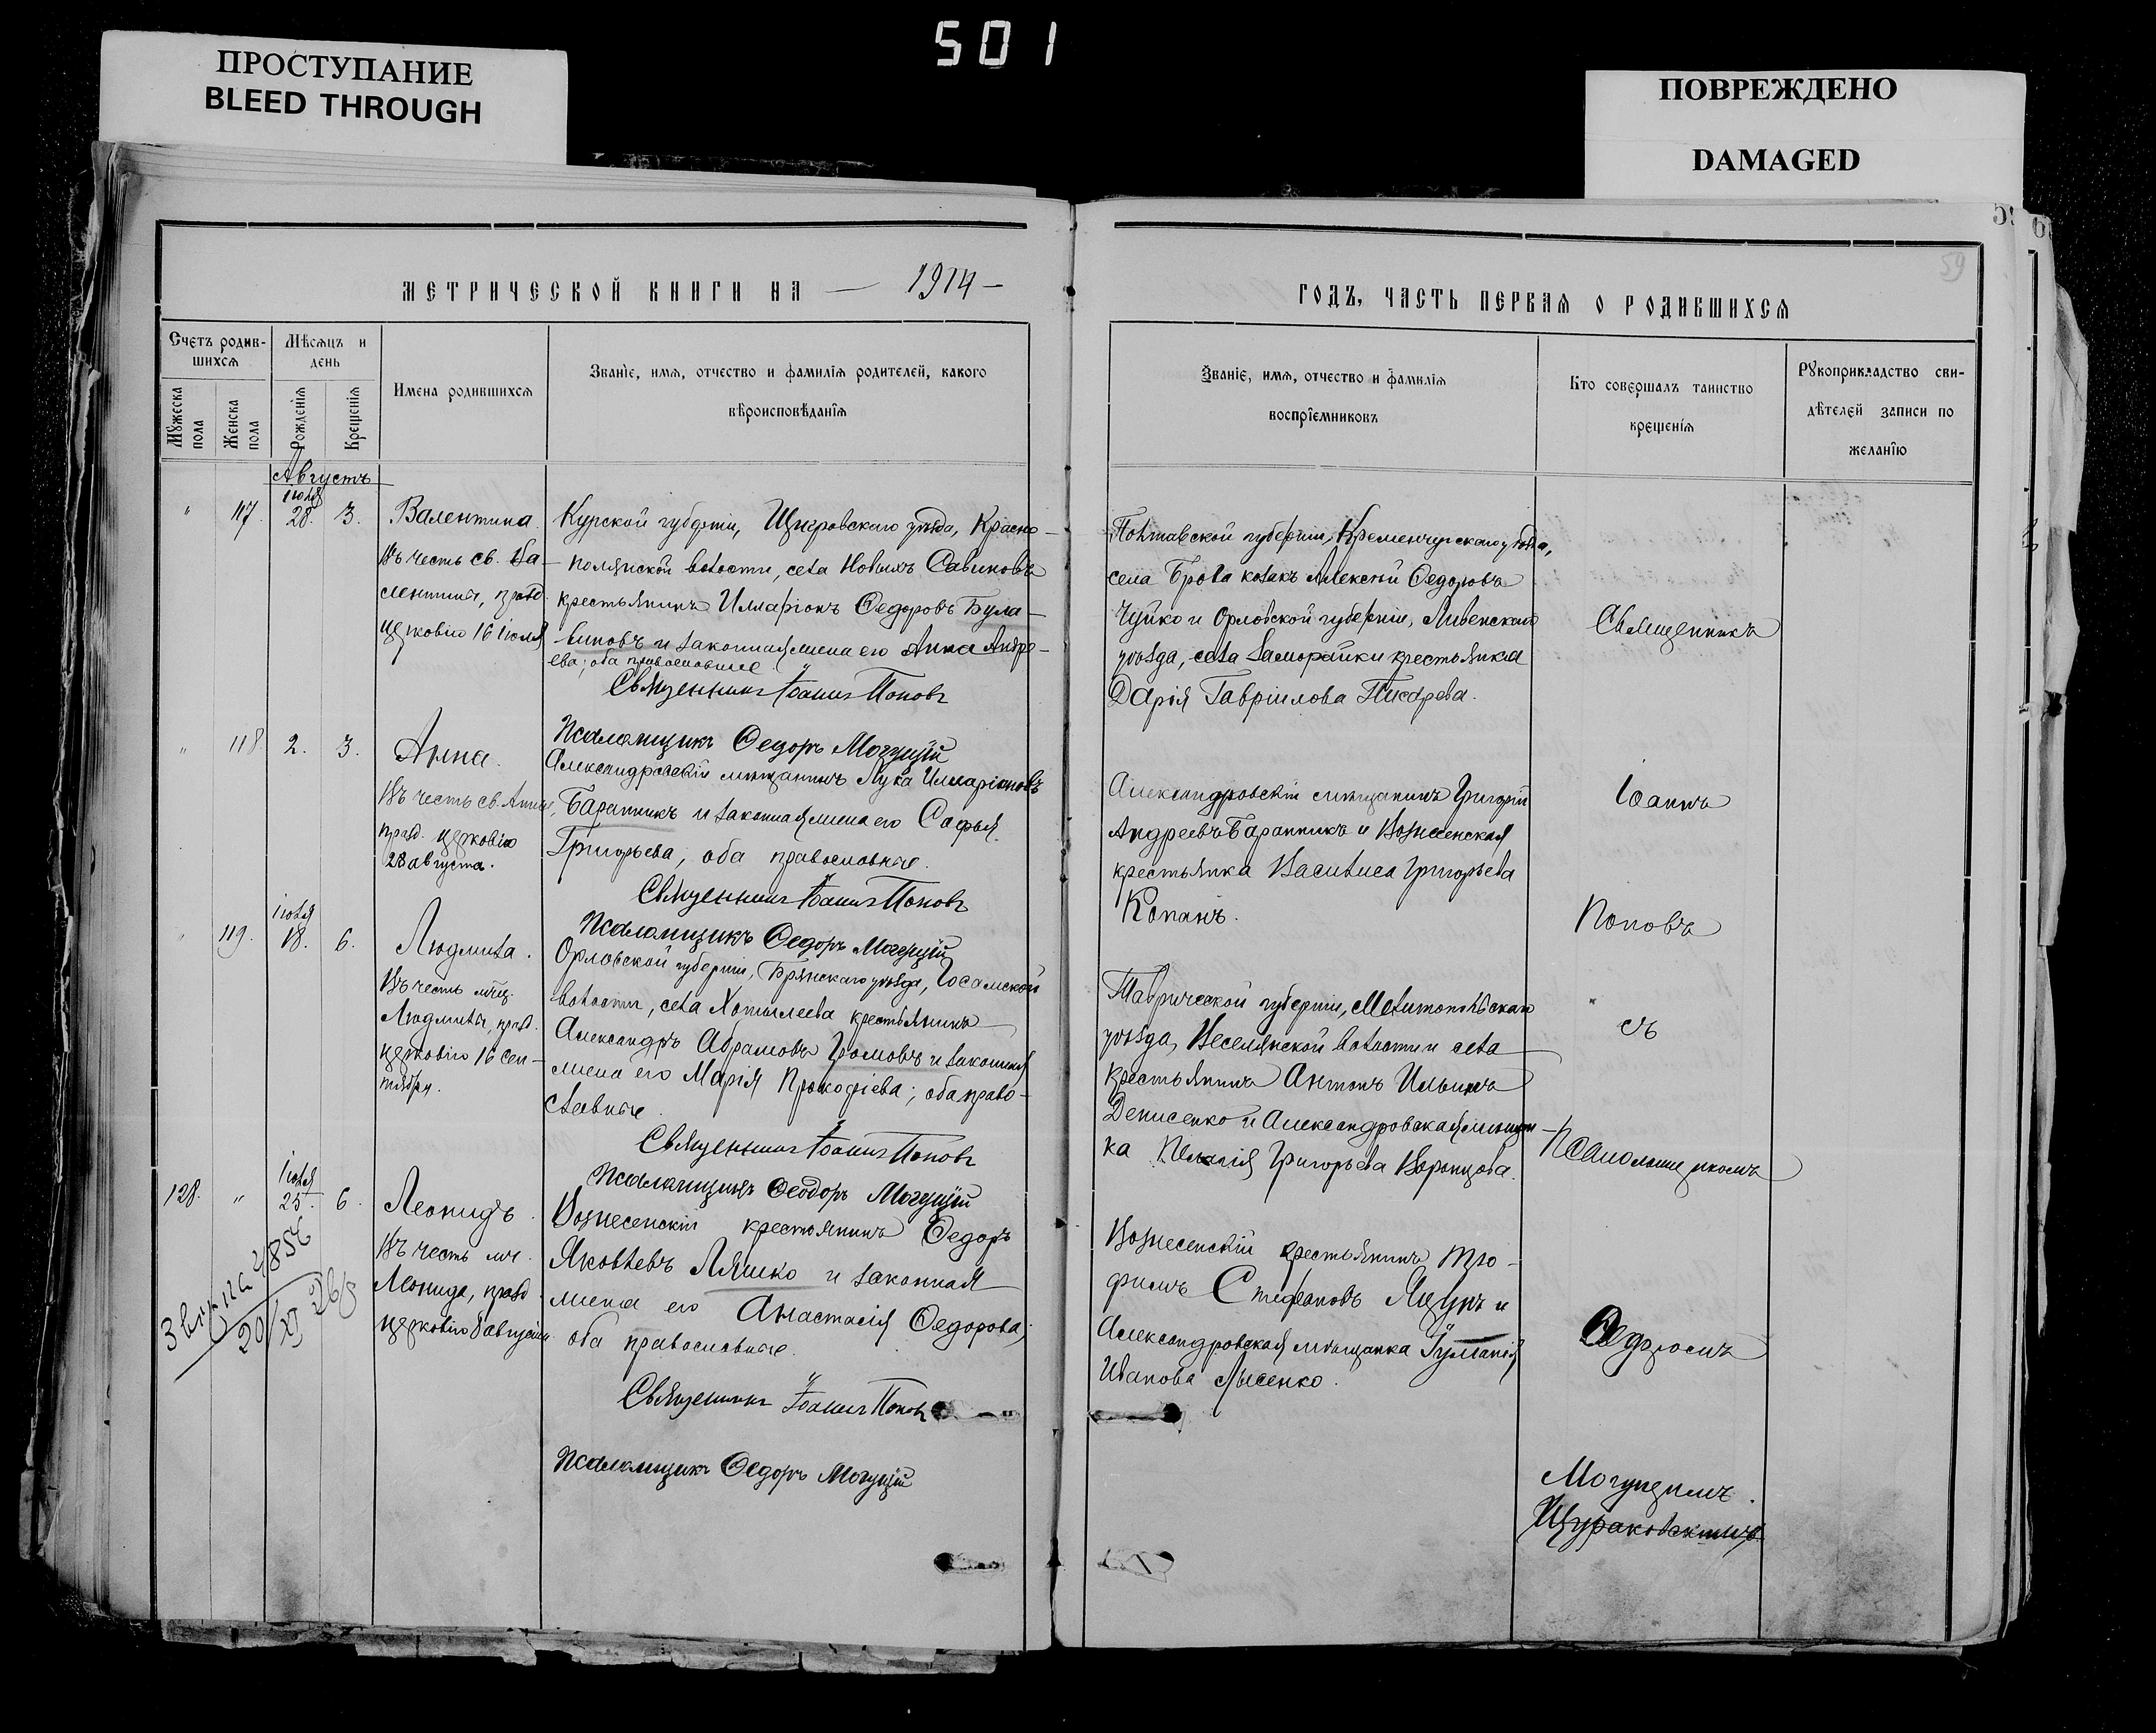 501
ПРОСТУПАНИЕ
BLEED THROUGH
ПОВРЕЖДЕНО
DAMAGED
59
МЕТРИЧЕСКОЙ КНИГИ НА — 1914 —
ГОДЪ, ЧАСТЬ ПЕРВАЯ О РОДИВШИХСЯ
Счетъ родив-
шихся
Мѣсяцъ и
день
Мужеска
пола
Женска
пола
Рожденія
Крещенія
Имена родившихся
Званіе, имя, отчество и фамилія родителей, какого
вѣроисповѣданія
Званіе, имя, отчество и фамилія
воспріемниковъ
Кто совершалъ таинство
крещенія
Рукоприкладство сви-
дѣтелей записи по
желанію
Августъ
" 117. іюля 28. 3.
Валентина.
Въ честь св. Ва-
лентины, празд.
церковію 16 іюля
Курской губерніи, Щигровскаго уѣзда, Красно-
полянской волости, села Новыхъ Савиновъ
крестьянинъ Илларіонъ Федоровъ Була-
виновъ и законная жена его Анна Андре-
ева; оба православные
Священникъ Іоаннъ Поповъ
Псаломщикъ Федоръ Могущій
Полтавской губерніи, Кременчугскаго уѣзда,
села Брова козакъ Алексѣй Федоровъ
Чуйко и Орловской губерніи, Ливенскаго
уѣзда, села Заморайки крестьянка
Дарія Гавріилова Писарева.
" 118. 2. 3.
Анна.
Въ честь св. Анны,
празд. церковію
28 августа.
Александровскій мѣщанинъ Лука Илларіоновъ
Баранникъ и законная жена его Софья
Григорьева, оба православные.
Священникъ Іоаннъ Поповъ
Псаломщикъ Федоръ Могущій
Александровскій мѣщанинъ Григорій
Андреевъ Баранникъ и Вознесенская
крестьянка Василиса Григорьева
Копанъ.
" 119. іюля 18. 6.
Людмила.
Въ честь мчц.
Людмилы, празд.
церковію 16 сен-
тября.
Орловской губерніи, Брянскаго уѣзда,
волости, села Хотылева крестьянинъ
Александръ Абрамовъ Громовъ и законная
жена его Марія Прокофіева; оба право-
славные.
Священникъ Іоаннъ Поповъ
Псаломщикъ Феодоръ Могущій
Таврической губерніи, Мелитопольскаго
уѣзда, Веселянской волости и села
крестьянинъ Антонъ Ильинъ
Денисенко и Александровская мѣщан-
ка Пелагія Григорьева Воронцова.
128. " іюля 25. 6.
Леонидъ.
Въ честь мч.
Леонида, празд.
церковію 8 августа
Вознесенскій крестьянинъ Федоръ
Яковлевъ Ляшко и законная
жена его Анастасія Федорова;
оба православные.
Священникъ Іоаннъ Поповъ
Псаломщикъ Федоръ Могущій
Вознесенскій крестьянинъ Тро-
фимъ Стефановъ Яцунъ и
Александровская мѣщанка
Иванова Лысенко.
20/XI
Священникъ
Іоаннъ
Поповъ
съ
Псаломщикомъ
Федоромъ
Могущимъ.